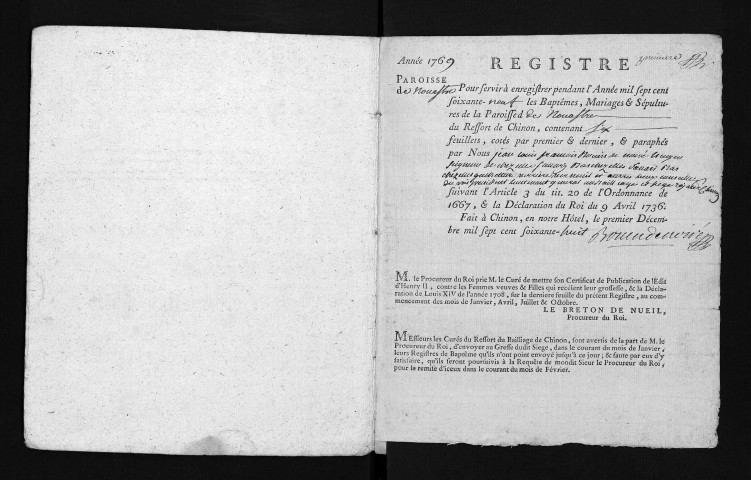 Année 1769
REGISTRE
premiere
PAROISSE
de Nouastre Pour servir à enregistrer pendant l'Année mil sept cent
soixante-neuf les Baptêmes, Mariages & Sépultu-
res de la Paroisse d de Nouastre
du Ressort de Chinon, contenant six
feuillets, cotés par premier & dernier, & paraphés
par Nous jean louis françois
suivant l'Article 3 du tit. 20 de l'Ordonnance de
1667, & la Déclaration du Roi du 9 Avril 1736.
Fait à Chinon, en notre Hôtel, le premier Décem-
bre mil sept cent soixante-huit
M. le Procureur du Roi prie M. le Curé de mettre son Certificat de Publication de l'Edit
d'Henry II, contre les Femmes veuves & Filles qui recèlent leur grossesse, & la Décla-
ration de Louis XIV de l'année 1708, sur la derniere feuille du présent Registre, au com-
mencement des mois de Janvier, Avril, Juillet & Octobre.
LE BRETON DE NUEIL,
Procureur du Roi.
MEssieurs les Curés du Ressort du Bailliage de Chinon, sont avertis de la part de M. le
Procureur du Roi, d'envoyer au Greffe dudit Siege, dans le courant du mois de Janvier,
leurs Registres de Baptême qu'ils n'ont point envoyé jusqu'à ce jour; & faute par eux d'y
satisfaire, qu'ils seront poursuivis à la Requête de mondit Sieur le Procureur du Roi,
pour la remise d'iceux dans le courant du mois de Février.